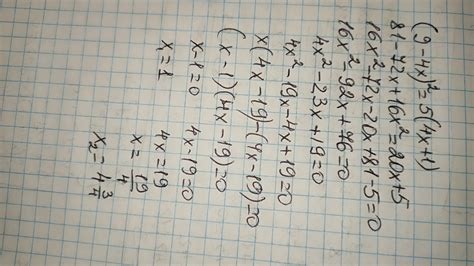 (9-4x)²=5(4x+1)
81-72x+16x²=20x+5
16x²-72x-20x+81-5=0
16x²-92x+76=0
4x²-23x+19=0
4x²-19x-4x+19=0
x(4x-19)-(4x-19)=0
(x-1)(4x-19)=0
x-1=0 4x-19=0
x₁=1 4x=19
x=19/4
x₂=4 3/4